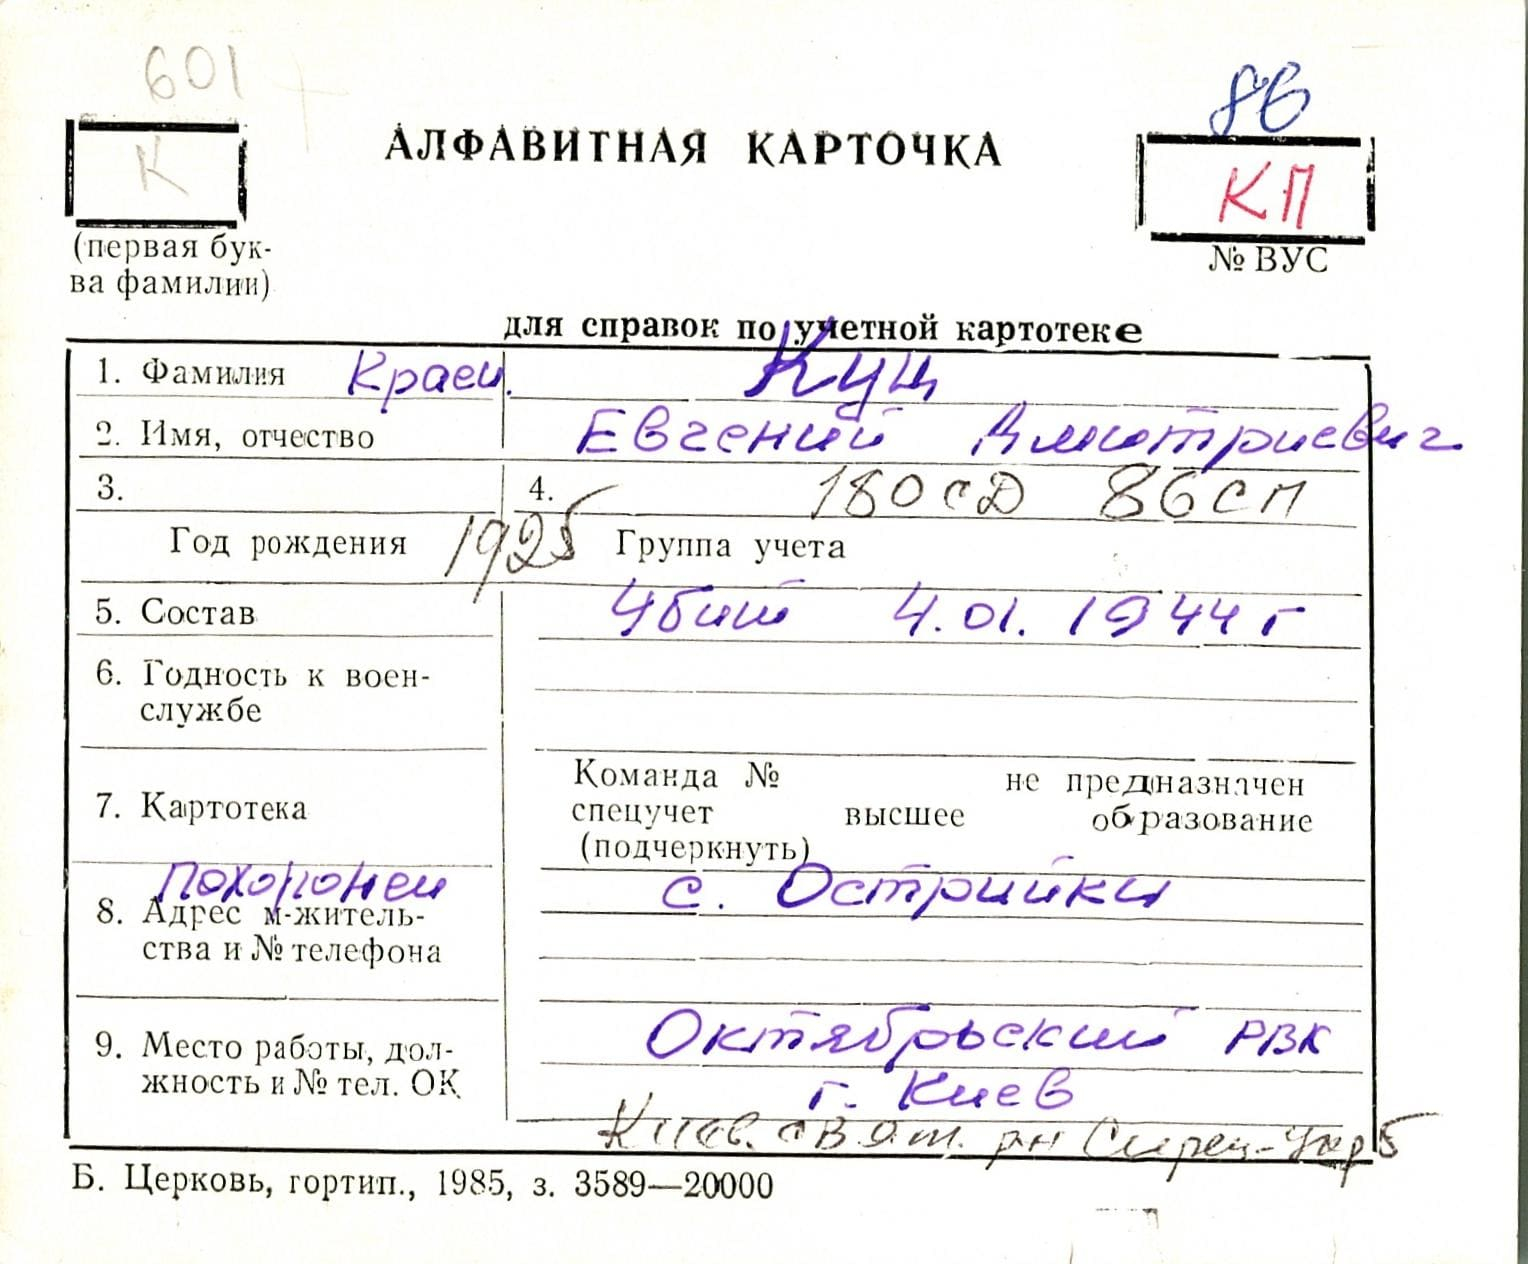 601
86
АЛФАВИТНАЯ КАРТОЧКА
К
КП
(первая бук-
ва фамилии)
№ ВУС
для справок по учетной картотеке
1. Фамилия Красн. Кущ
2. Имя, отчество Евгений Дмитриевич
3. 4. 180 СД 86 СП
Год рождения 1925 Группа учета
5. Состав Убит 4.01.1944 г
6. Годность к воен-
службе
7. Картотека
Команда № не предназначен
спецучет высшее образование
(подчеркнуть)
похоронен с. Острийки
8. Адрес м-житель-
ства и № телефона
9. Место работы, дол-
жность и № тел. ОК
Октябрьский РВК
г. Киев
Киев. свят. рн
Б. Церковь, гортип., 1985, з. 3589—20000